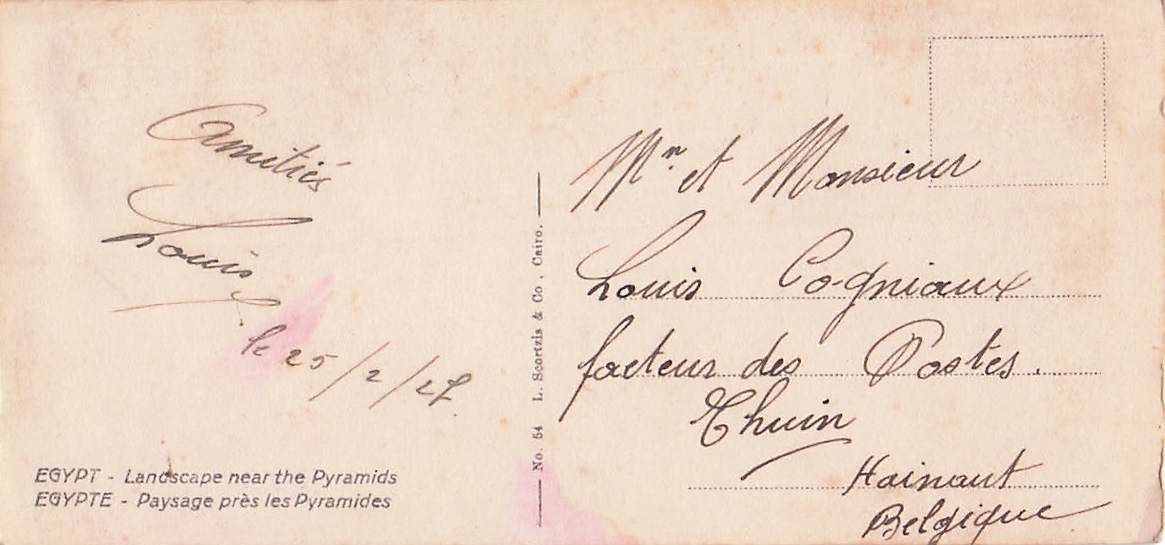 Amitiés
Louis
le 25/2/27.
EGYPT - Landscape near the Pyramids
EGYPTE - Paysage près les Pyramides
No. 54 L. Scortzis & Co, Cairo.
Mⁿ et Monsieur
Louis Cogniaux
facteur des Postes.
Thuin
Hainaut
Belgique